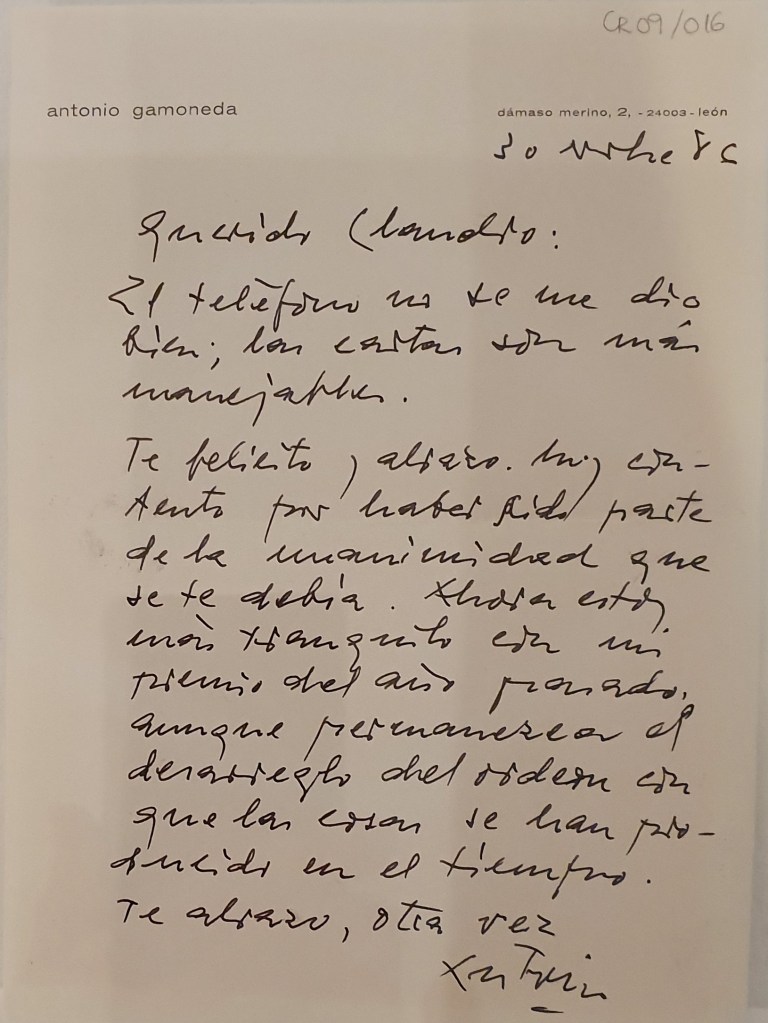 CR09/016
antonio gamoneda
dámaso merino, 2, - 24003 - león
30 nvbre 86
Querido Claudio:
El teléfono no se me dio
bien; las cartas son más
manejables.
Te felicito y abrazo. Muy con-
tento por haber sido parte
de la unanimidad que
se te debía. Ahora estoy
más tranquilo con mi
premio del año pasado,
aunque permanezca el
desarreglo del orden con
que las cosas se han pro-
ducido en el tiempo.
Te abrazo, otra vez
Antonio